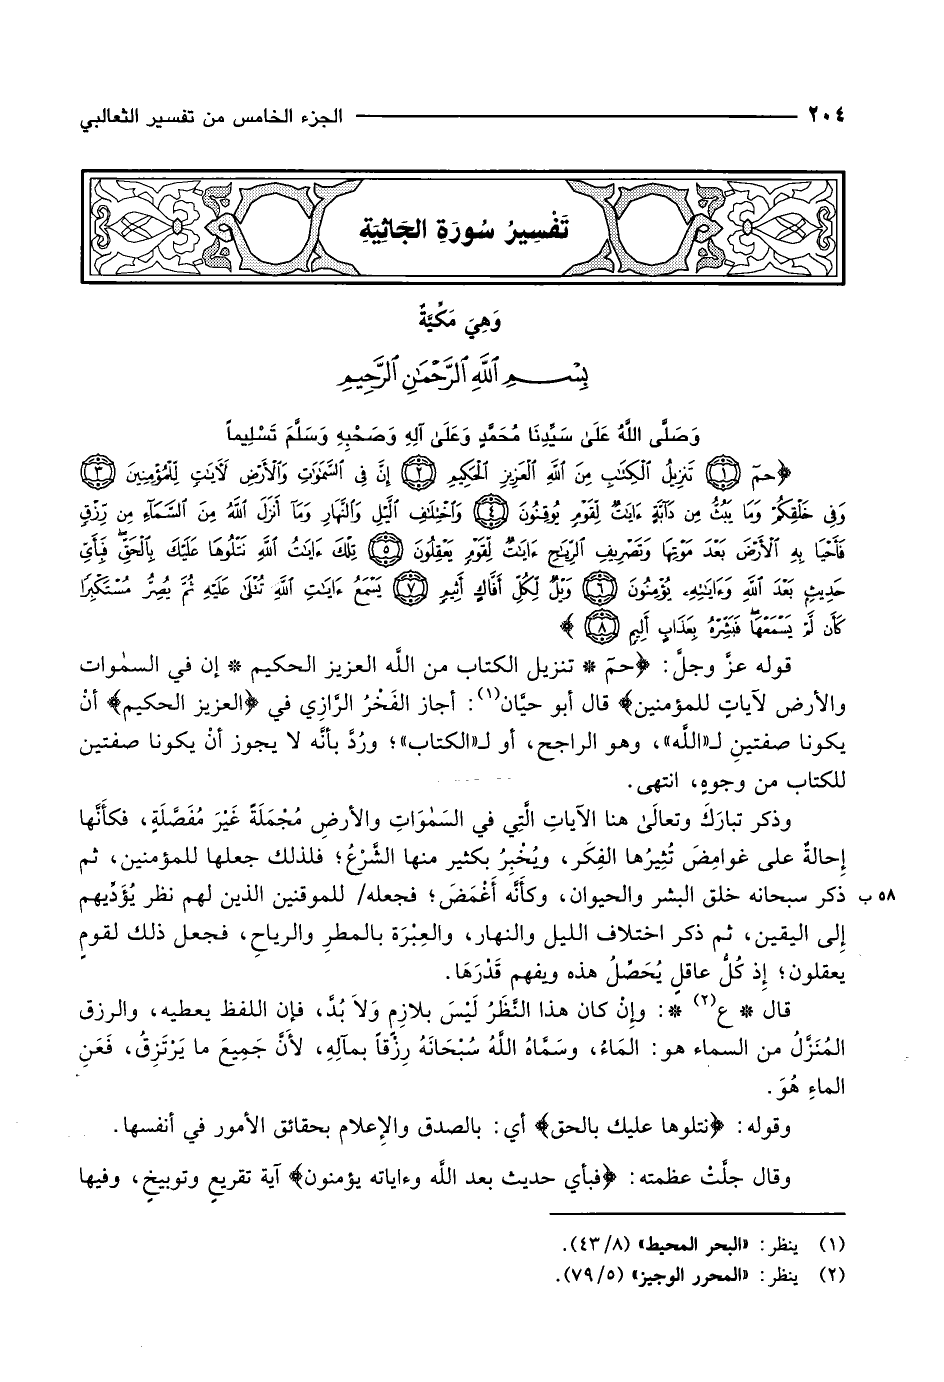 ٢٠٤ الجزء الخامس من تفسير الثعالبي
تَفْسِيرُ سُورَةِ الجَاثِيَةِ
وَهِيَ مَكِّيَّةٌ
بِسْمِ ٱللَّهِ ٱلرَّحْمَٰنِ ٱلرَّحِيمِ
وَصَلَّى اللَّهُ عَلَىٰ سَيِّدِنَا مُحَمَّدٍ وَعَلَىٰ آلِهِ وَصَحْبِهِ وَسَلَّمَ تَسْلِيماً
﴿حمٓ ١ تَنزِيلُ ٱلْكِتَٰبِ مِنَ ٱللَّهِ ٱلْعَزِيزِ ٱلْحَكِيمِ ٢ إِنَّ فِى ٱلسَّمَٰوَٰتِ وَٱلْأَرْضِ لَءَايَٰتٍ لِّلْمُؤْمِنِينَ ٣
وَفِى خَلْقِكُمْ وَمَا يَبُثُّ مِن دَآبَّةٍ ءَايَٰتٌ لِّقَوْمٍ يُوقِنُونَ ٤ وَٱخْتِلَٰفِ ٱلَّيْلِ وَٱلنَّهَارِ وَمَآ أَنزَلَ ٱللَّهُ مِنَ ٱلسَّمَآءِ مِن رِّزْقٍ
فَأَحْيَا بِهِ ٱلْأَرْضَ بَعْدَ مَوْتِهَا وَتَصْرِيفِ ٱلرِّيَٰحِ ءَايَٰتٌ لِّقَوْمٍ يَعْقِلُونَ ٥ تِلْكَ ءَايَٰتُ ٱللَّهِ نَتْلُوهَا عَلَيْكَ بِٱلْحَقِّ ۖ فَبِأَيِّ
حَدِيثٍۭ بَعْدَ ٱللَّهِ وَءَايَٰتِهِۦ يُؤْمِنُونَ ٦ وَيْلٌ لِّكُلِّ أَفَّاكٍ أَثِيمٍ ٧ يَسْمَعُ ءَايَٰتِ ٱللَّهِ تُتْلَىٰ عَلَيْهِ ثُمَّ يُصِرُّ مُسْتَكْبِرًا
كَأَن لَّمْ يَسْمَعْهَا ۖ فَبَشِّرْهُ بِعَذَابٍ أَلِيمٍ ٨﴾
قوله عزَّ وجلَّ: ﴿حمۤ * تنزيل الكتاب من اللَّه العزيز الحكيم * إن في السمٰوات
والأرض لآياتٍ للمؤمنين﴾ قال أبو حيَّان(١): أجاز الفَخْرُ الرَّازِي في ﴿العزيز الحكيم﴾ أنْ
يكونا صفتينِ لـ«اللَّه»، وهو الراجح، أو لـ«الكتاب»؛ ورُدَّ بأنَّه لا يجوز أنْ يكونا صفتين
للكتاب من وجوهٍ، انتهى.
وذكر تبارَكَ وتعالَىٰ هنا الآياتِ الَّتِي في السَمٰوَاتِ والأرضِ مُجْمَلَةً غَيْرَ مُفَصَّلَةٍ، فكأَنَّها
إحالةٌ على غوامِضَ تُثِيرُها الفِكَر، ويُخْبِرُ بكثير منها الشَّرْعُ؛ فلذلك جعلها للمؤمنين، ثم
٥٨ ب ذكر سبحانه خلق البشر والحيوان، وكأنَّه أَغْمَضُ؛ فجعله/ للموقنين الذين لهم نظر يُؤَدِّيهم
إلى اليقين، ثم ذكر اختلاف الليل والنهار، والعِبْرَة بالمطرِ والرياح، فجعل ذلك لقومٍ
يعقلون؛ إذ كُلُّ عاقلٍ يُحَصِّلُ هذه ويفهم قَدْرَهَا.
قال * ع(٢) *: وإنْ كان هذا النَّظَرُ لَيْسَ بلازمٍ وَلاَ بُدَّ، فإن اللفظ يعطيه، والرزق
المُنَزَّلُ من السماء هو: المَاءُ، وسَمَّاهُ اللَّهُ سُبْحَانَهُ رِزْقاً بمآلِهِ، لأَنَّ جَمِيعَ ما يَرْتَزِقُ، فَعَنِ
الماءِ هُوَ.
وقوله: ﴿نتلوها عليك بالحق﴾ أي: بالصدق والإعلام بحقائق الأمور في أنفسها.
وقال جلَّتْ عظمته: ﴿فبأي حديث بعد اللَّه وءاياته يؤمنون﴾ آية تقريعٍ وتوبيخٍ، وفيها
(١) ينظر: «البحر المحيط» (٤٣/٨).
(٢) ينظر: «المحرر الوجيز» (٧٩/٥).